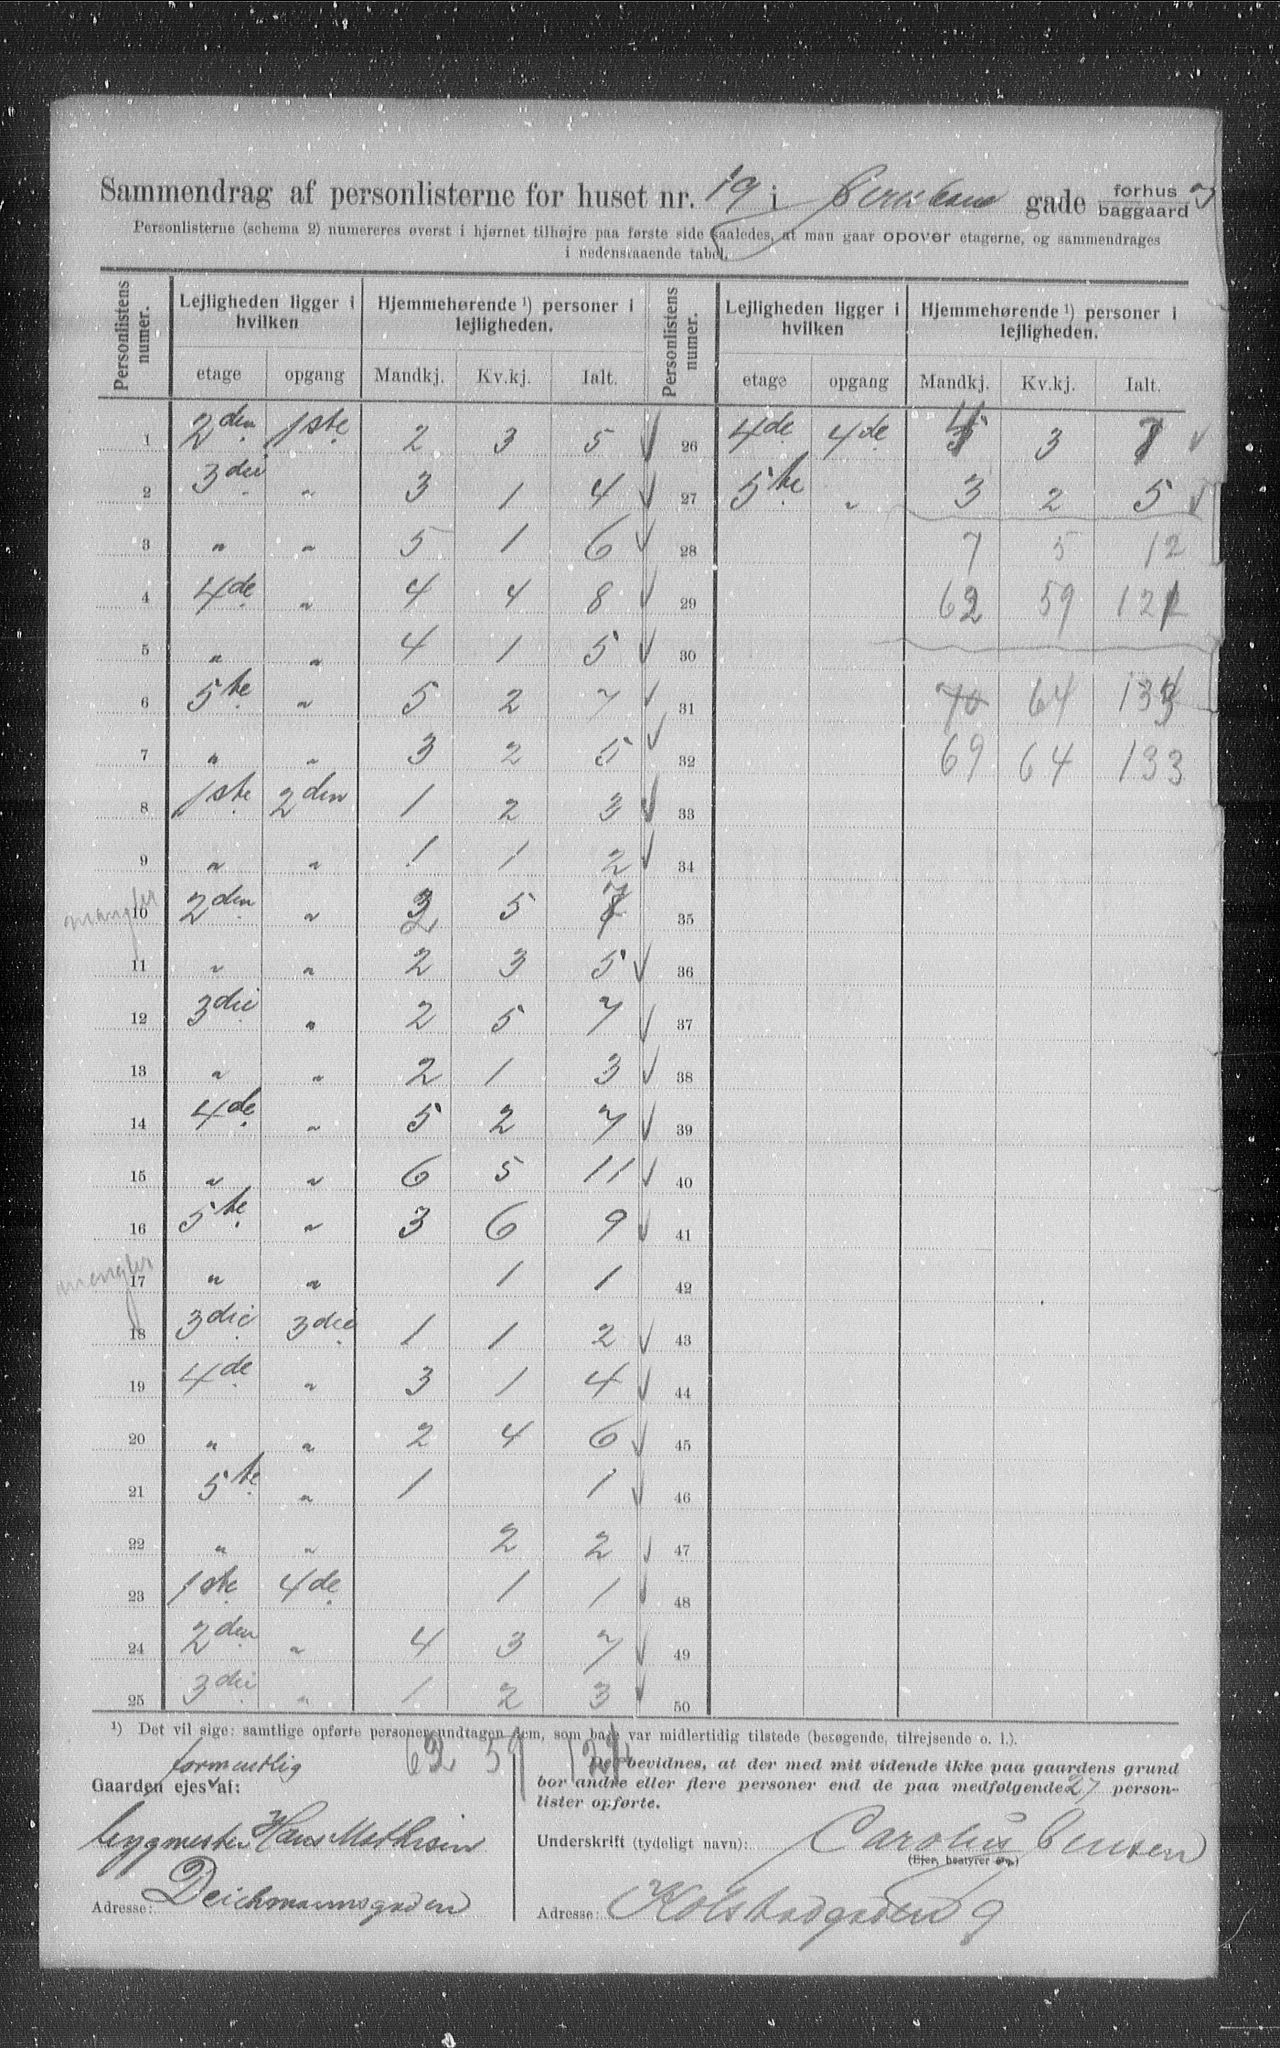 Sammendrag af personlisterne for huset nr. 19 i gade forhus baggaard
Personlisterne (schema 2) numereres øverst i hjørnet tilhøjre paa første side saaledes, at man gaar opover etagerne, og sammendrages
i nedenstaaende tabel.
Personlistens numer. Lejligheden ligger i hvilken Hjemmehørende ¹) personer i lejligheden. Personlistens numer. Lejligheden ligger i hvilken Hjemmehørende ¹) personer i lejligheden.
etage opgang Mandkj. Kv.kj. Ialt. etage opgang Mandkj. Kv.kj. Ialt.
1 2den 1ste 2 3 5 √ 26 4de 4de 4 3 7 √
2 3die " 3 1 4 √ 27 5te " 3 2 5 √
3 " " 5 1 6 √ 28 7 5 12
4 4de " 4 4 8 √ 29 62 59 121
5 " " 4 1 5 √ 30
6 5te " 5 2 7 √ 31 70 64 134
7 " " 3 2 5 √ 32 69 64 133
8 1ste 2den 1 2 3 √ 33
9 " " 1 1 2 √ 34
mangler 10 2den " 2 5 7 35
11 " " 2 3 5 √ 36
12 3die " 2 5 7 √ 37
13 " " 2 1 3 √ 38
14 4de " 5 2 7 √ 39
15 " " 6 5 11 √ 40
16 5te " 3 6 9 √ 41
mangler 17 " " 1 1 42
18 3die 3die 1 1 2 √ 43
19 4de " 3 1 4 √ 44
20 " " 2 4 6 √ 45
21 5te " 1 1 √ 46
22 " " 2 2 √ 47
23 1ste 4de 1 1 √ 48
24 2den " 4 3 7 √ 49
25 3die " 1 2 3 √ 50
¹) Det vil sige: samtlige opførte personer undtagen dem, som bare var midlertidig tilstede (besøgende, tilrejsende o. l.).
62 59 121
formentlig
Gaarden ejes af:
bygmester Hans Mathisen
Adresse: Deichmannsgaden
Det bevidnes, at der med mit vidende ikke paa gaardens grund
bor andre eller flere personer end de paa medfølgende 27 person-
lister opførte.
Underskrift (tydeligt navn): Carolus Jensen
(Ejer, bestyrer o.s.)
Adresse: Kolstadgaden 9